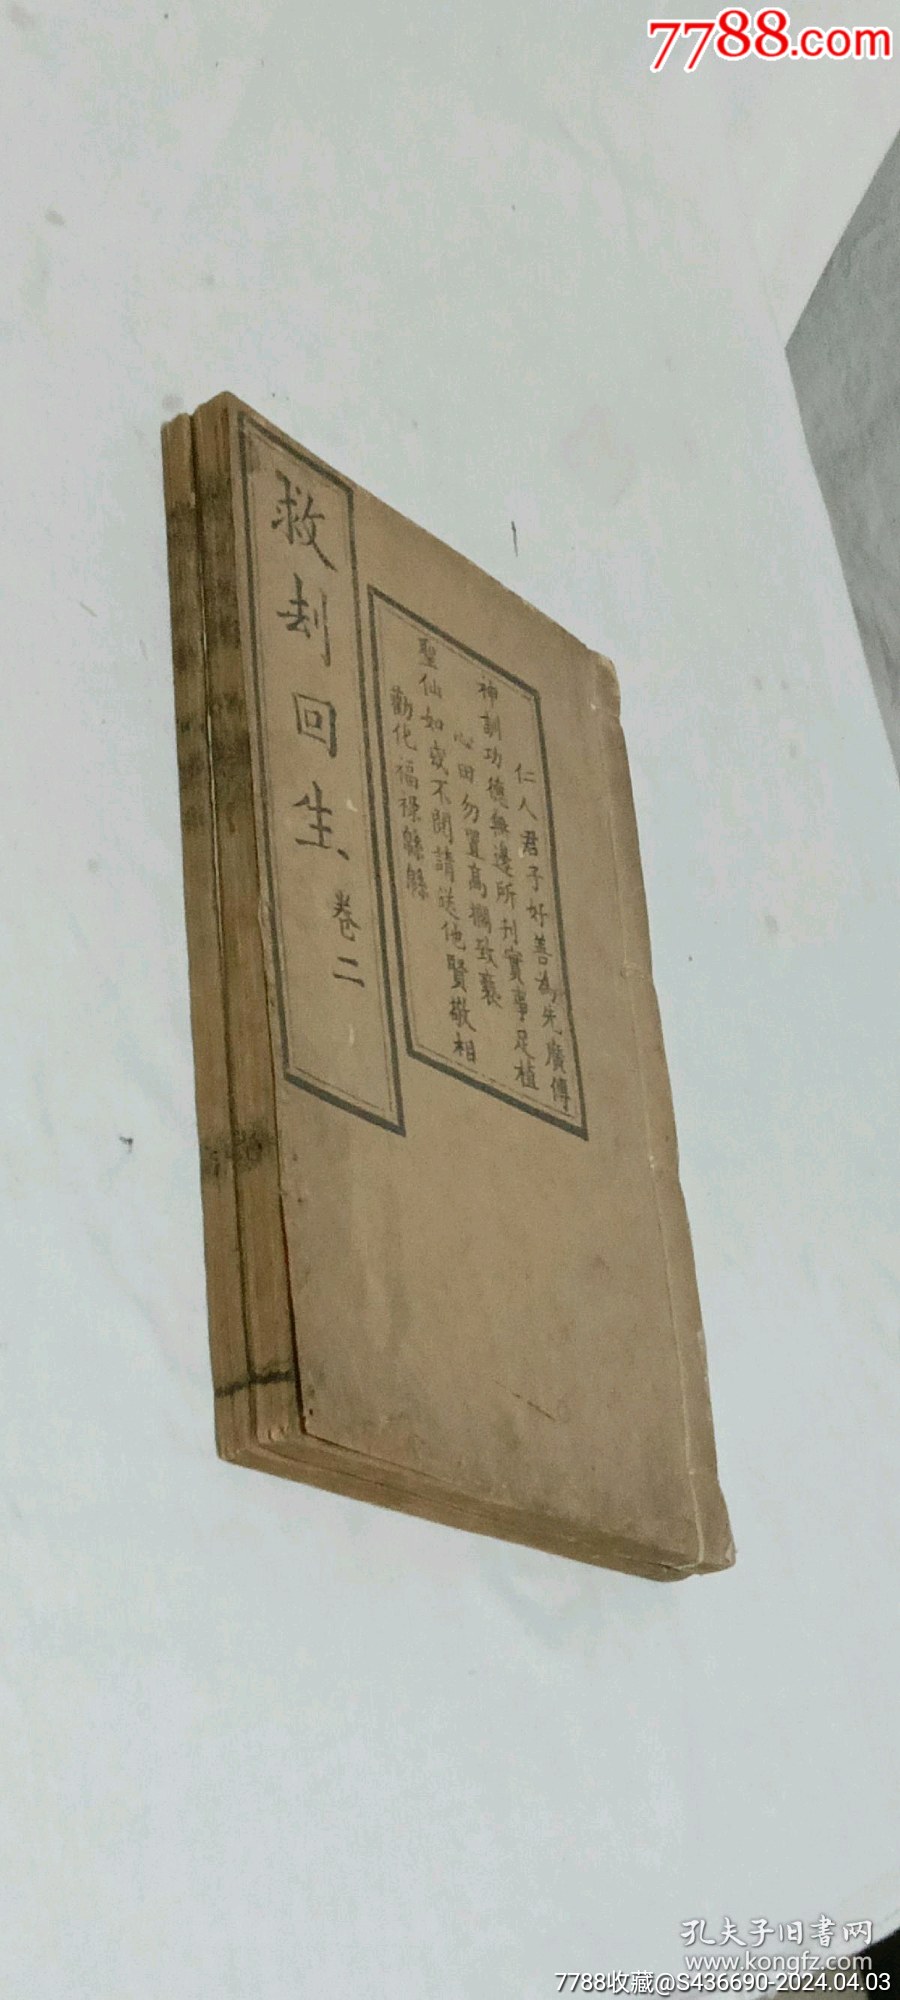 7788.com
救刦回生
卷二
仁人君子好善為先廣傳
神訓功德無邊所刊實事足植
心田勿置高擱致褻
聖仙如或不閱請送他賢敬相
勸化福祿緜緜
孔夫子旧书网
www.kongfz.com
7788收藏@S436690-2024.04.03